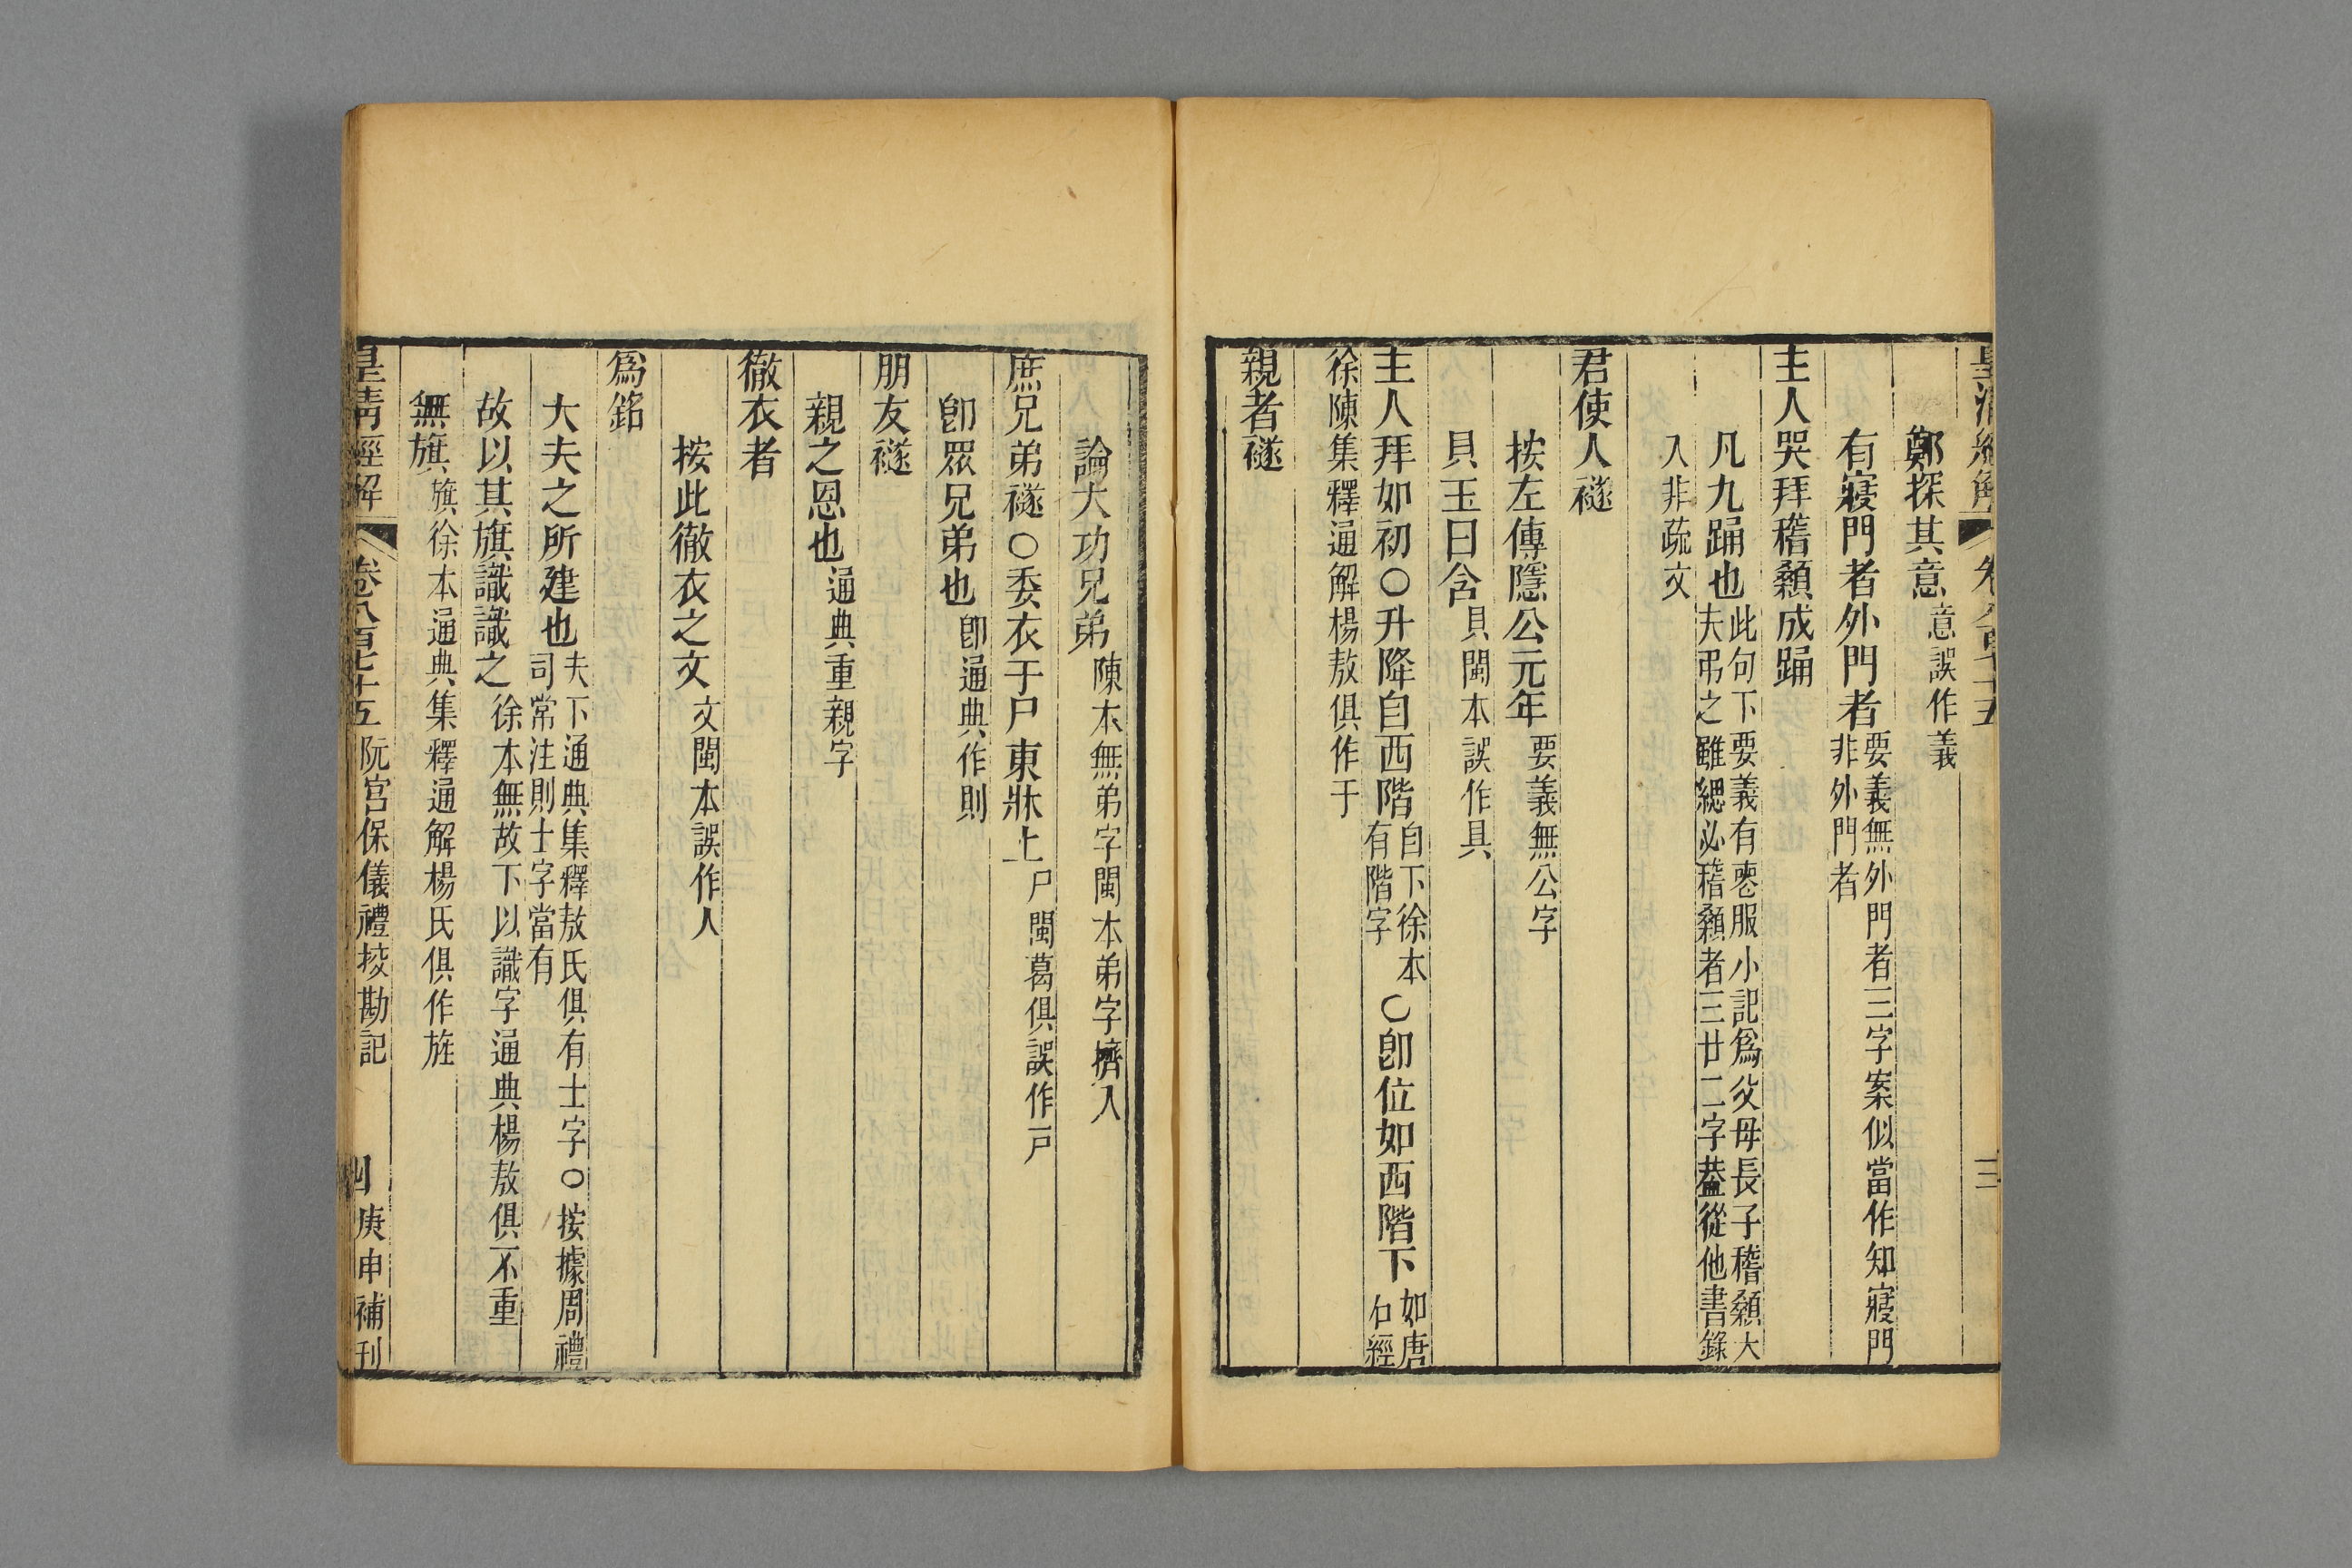 皇清經解 卷八百七十五 三
鄭探其意意誤作義
有寢門者外門者要義無外門者三字案似當作知寢門非外門者
主人哭拜稽顙成踊
凡九踊也此句下要義有喪服小記爲父母長子稽顙大夫弔之雖緦必稽顙者三廿二字葢從他書錄
入非疏文
君使人襚
按左傳隱公元年要義無公字
貝玉曰含貝閩本誤作具
主人拜如初○升降自西階自下徐本有階字○卽位如西階下如唐石經
徐陳集釋通解楊敖俱作于
親者襚
論大功兄弟陳本無弟字閩本弟字擠入
庶兄弟襚○委衣于尸東牀上尸閩葛俱誤作戸
卽眾兄弟也卽通典作則
朋友襚
親之恩也通典重親字
徹衣者
按此徹衣之文文閩本誤作人
爲銘
大夫之所建也夫下通典集釋敖氏俱有士字○按據周禮司常注則士字當有
故以其旗識識之徐本無故下以識字通典楊敖俱不重
無旗旗徐本通典集釋通解楊氏俱作旌
皇清經解 卷八百七十五 阮宮保儀禮挍勘記 四 庚申補刊